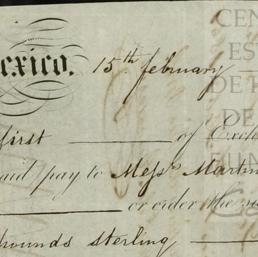 exico. 15th february
first of Exch
aid pay to Messrs Martin
or order the s
pounds sterling
CEN
ES
DE T
DE
FUN